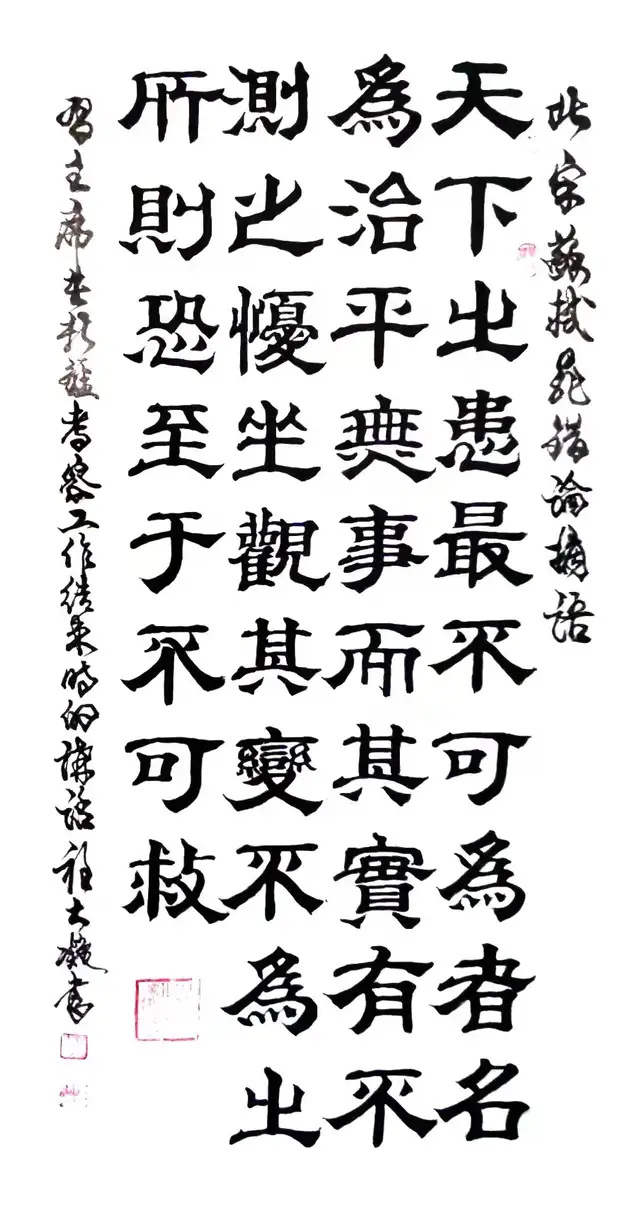 北宋蘇軾晁錯論摘語
天下之患最不可爲者名
爲治平無事而其實有不
測之懮坐觀其變不爲之
所則恐至于不可救
習主席在新疆考察工作結束時的講話 程大凝書